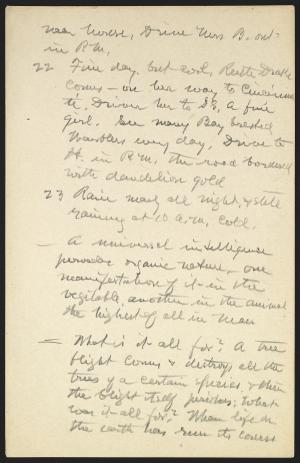 near house, Drive Mrs B. out
in P.M.
22 Fine day, but cool, Ruth Drake
comes – on her way to Cincinna
ti. Drive her to S.E. A fine
girl. See many Bay breasted
Warblers every day. Drive to
H. in P.M. the road bordered
with dandelion gold
23 Rain nearly all night, & still
raining at 10 A.M. Cold.
— A universal intelligence
pervades organic nature, one
manifestation of it in the
vegetable, another in the animal
the highest of all in man
— What is it all for? A tree
blight comes & destroys all the
trees of a certain species & then
the blight itself perishes; What
was it all for? When life on
the earth has run its course